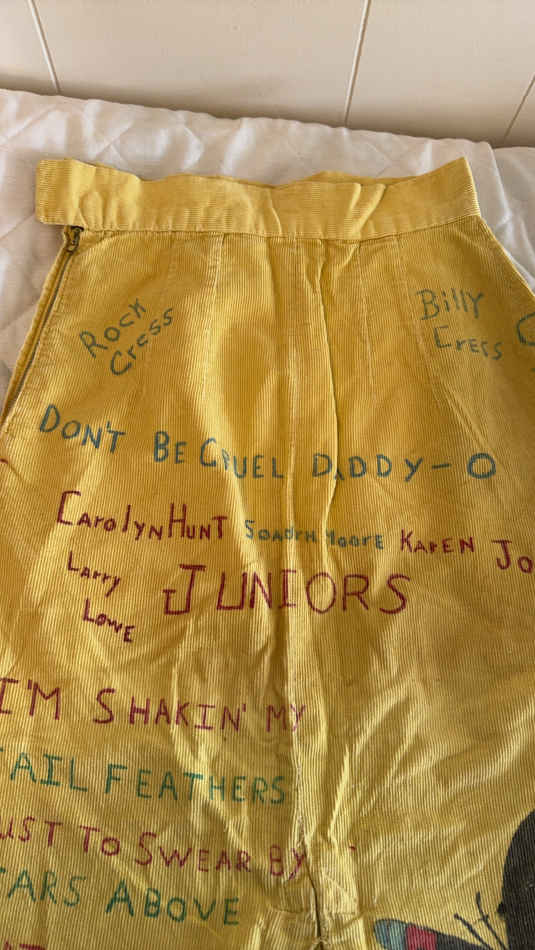 Rock
Cress
Billy
Cress
DON'T BE CRUEL DADDY-O
CarolynHunt
Moore KAREN JO
Larry
Lowe
JUNIORS
I'M SHAKIN' MY
TAIL FEATHERS
UST TO SWEAR BY
ARS ABOVE